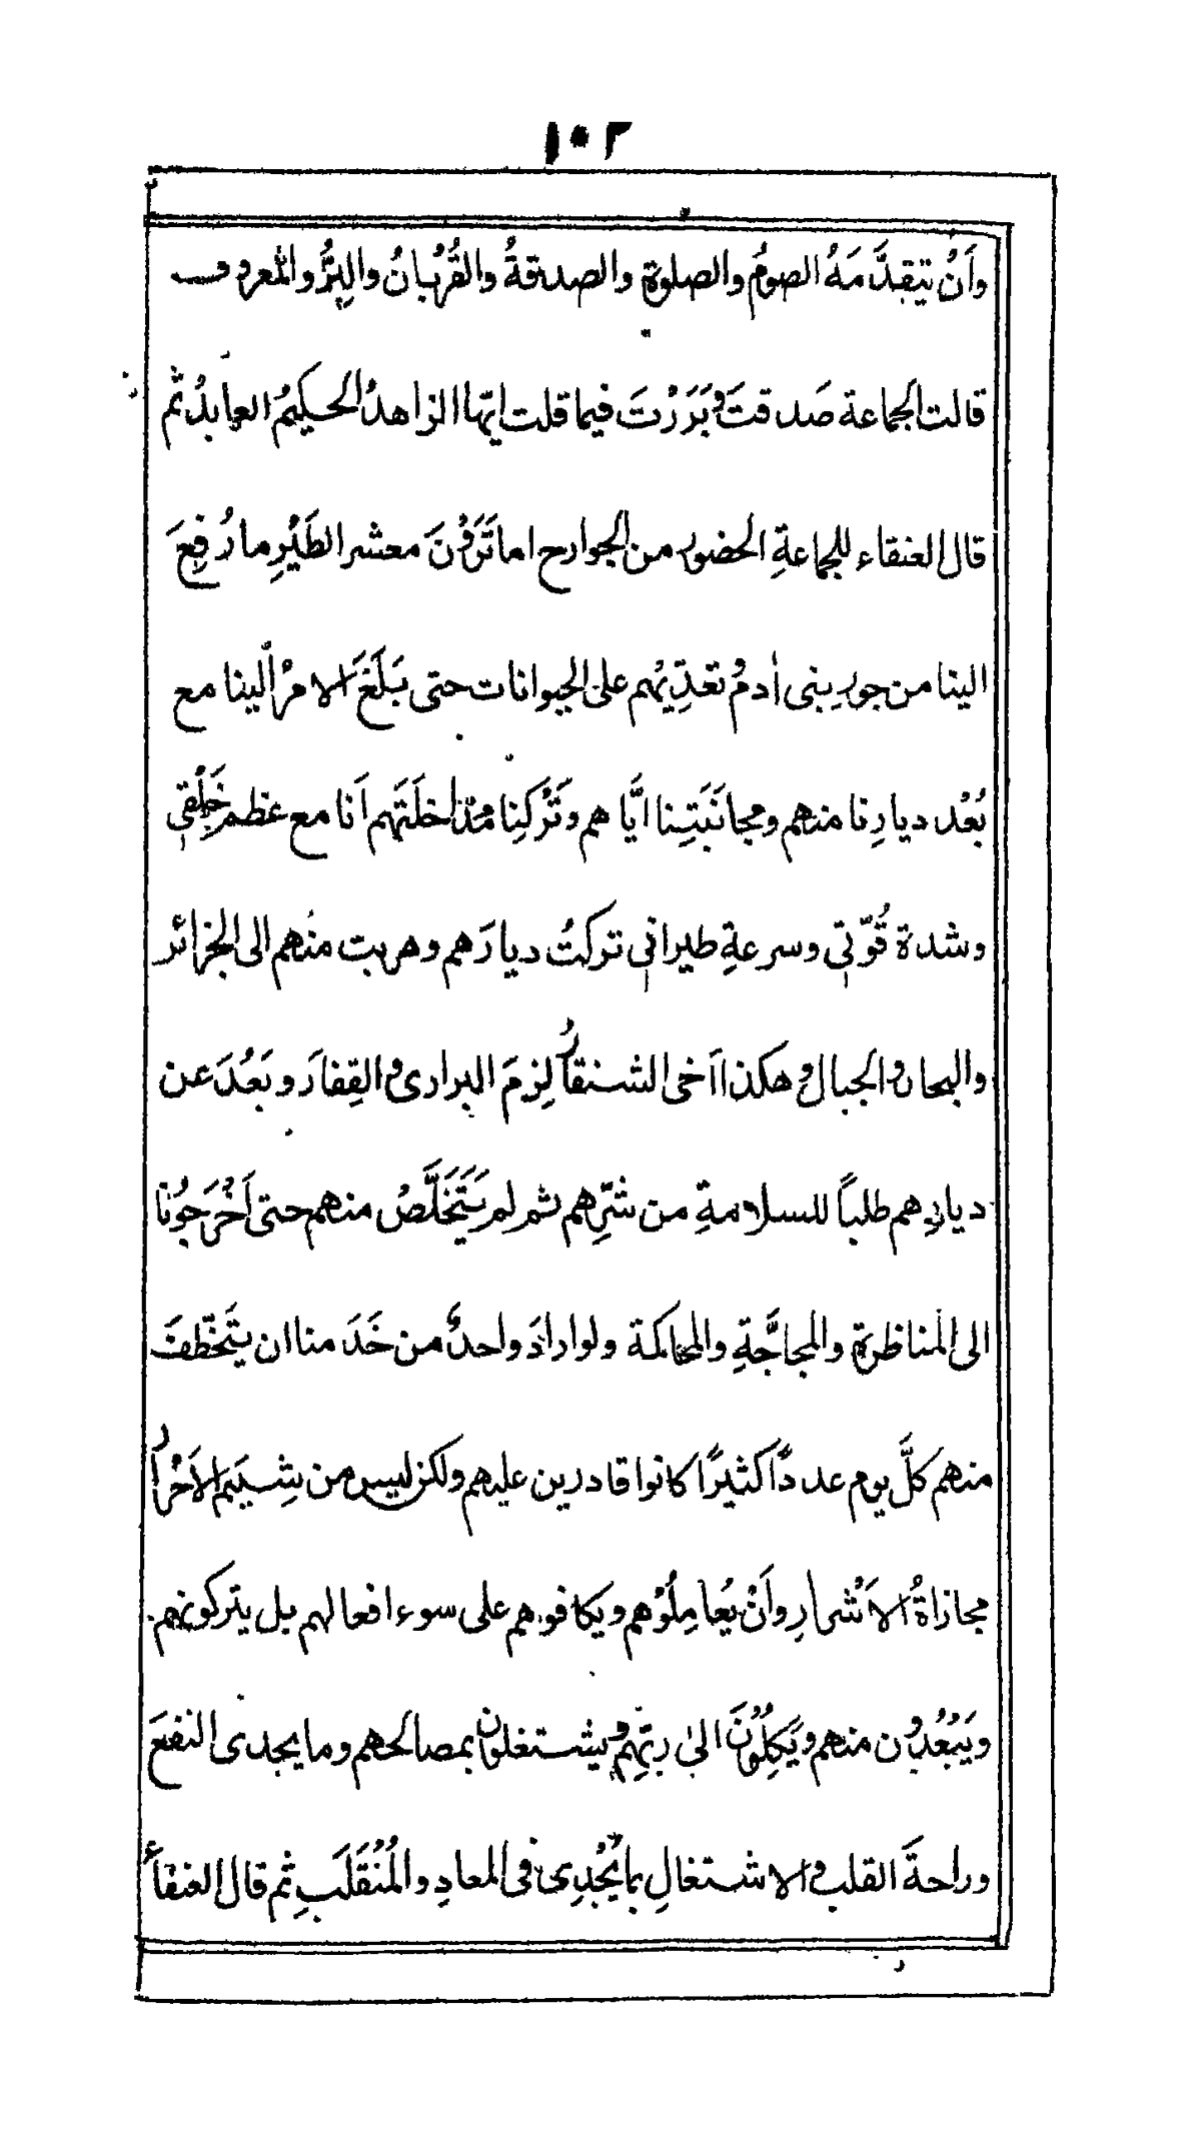 ١٠٢
وأَنْ يتقدَّمَهُ الصومُ والصلوة والصدقةُ والقُرْبانُ والبِرُّ والمعروف
قالت الجماعة صَدقتَ وبَرَرْتَ فيما قلت ايّها الزاهدُ الحكيمُ العابدُ ثم
قال العنقاء للجماعةِ الحضور من الجوارح اما تَرَوْنَ معشر الطَيْرِ ما رُفِعَ
الينا من جورِ بنى اٰدمُ وتعدِّيْهم على الحيوانات حتى بَلَغَ الامرُ الينا مع
بُعْد ديارِنا منهم ومجانَبَتِنا ايَّاهم وتَرْكِنا مُداخلَتَهم اَنا مع عظم خَلْقى
وشدة قُوّتى وسرعةِ طيرانى تركتُ ديارَهم وهربت منهم الى الجزائر
والبحار والجبال وهكذا اَخى الشنقارُ لزِمَ البرارى والقِفارَ وبَعُدَ عن
ديارِهم طلباً للسلامةِ من شرِّهم ثم لم يَتَخَلَّصُ منهم حتى اَخْرَجوُنا
الى المناظرة والمحاجَّةِ والمحاكمة ولو ارادَ واحدٌ من خَدَمنا ان يتَخطّفَ
منهم كلَّ يوم عدداً كثيرًا كانوا قادرين عليهم ولكن ليس من شِيَمِ الاَحْرار
مجازاةُ الاَشْرارِ واَنْ يُعامِلُوْهم ويكافوهم على سوء افعالهم بل يتركونهم
ويَبْعُدُون منهم ويَكِلُوْنَ الىٰ ربّهِم ويشتغلون بمصالحهم وما يجدى النفعَ
وراحةَ القلب والاشتغالِ بما يُجْدِى فى المعادِ والمُنْقَلَبِ ثم قال العنقاءُ